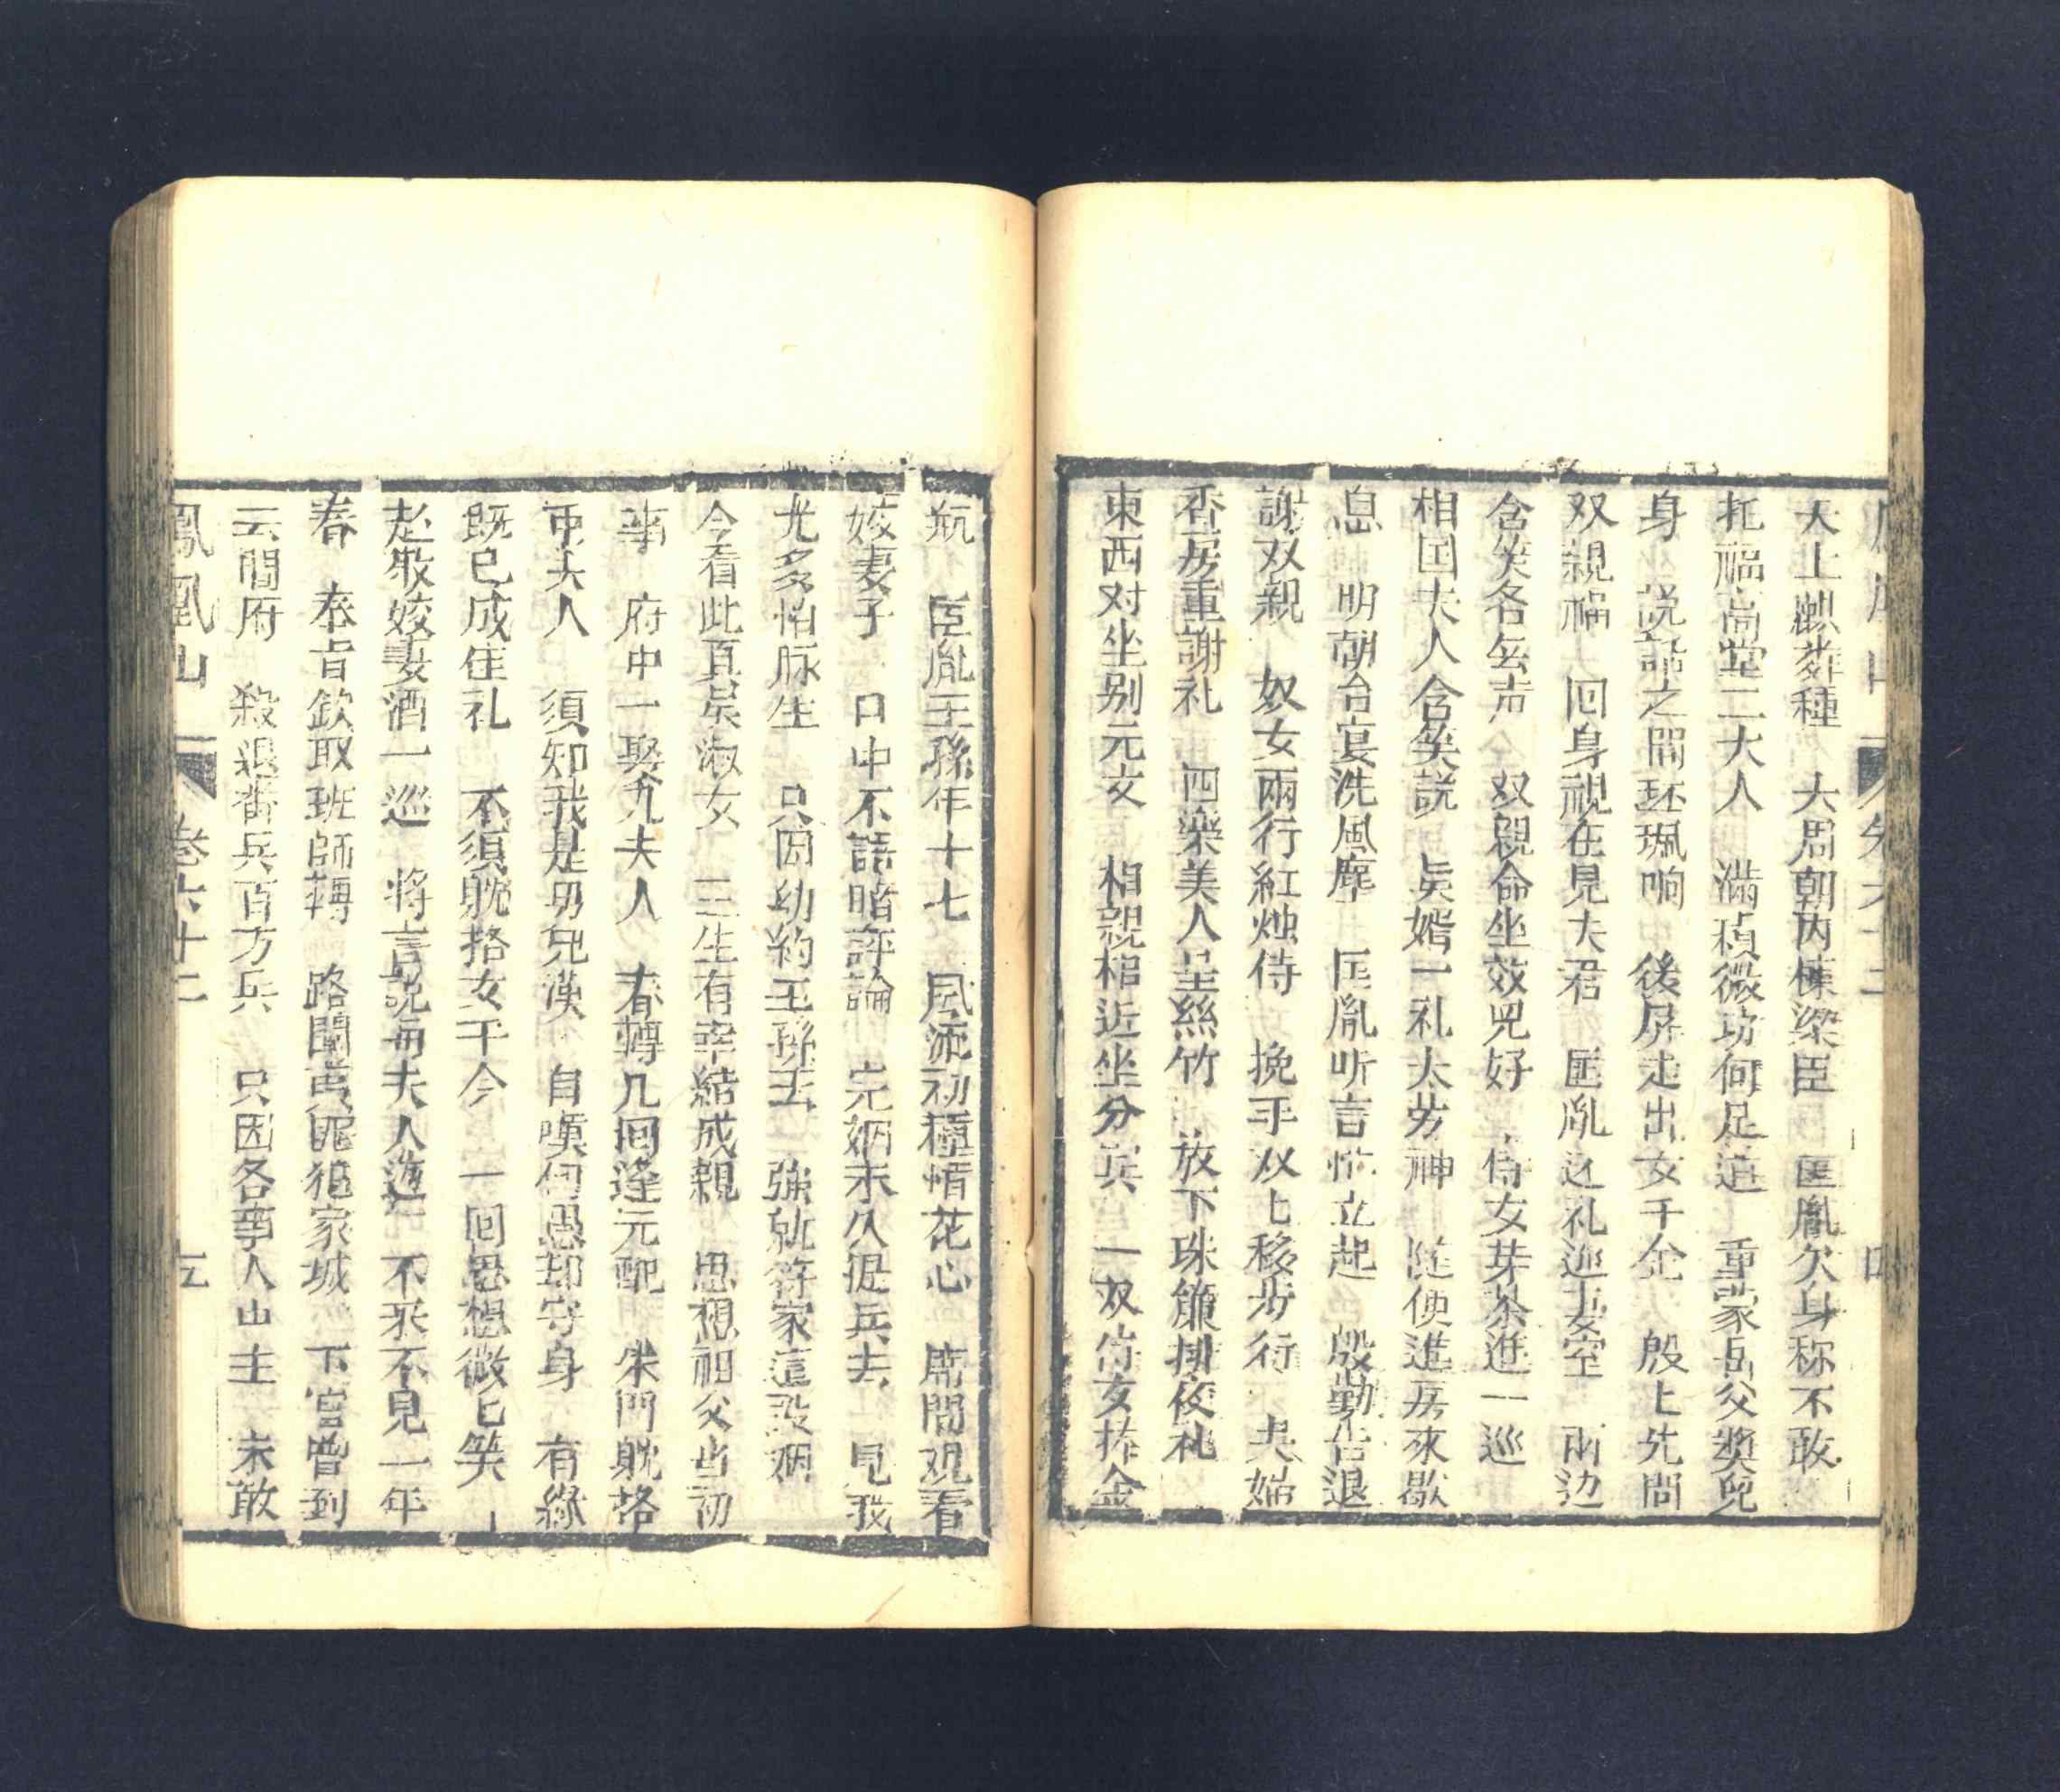 天上麒麟種　大周朝內棟梁臣　匡胤欠身称不敢
托福高堂二大人　滿積微功何足道　重蒙岳父獎兒
身　説話之間环珮响　後屏走出女千金　殷上先問
双親福　囘身視在見夫君　匡胤还礼巡　空　兩边
含笑各無声　双親命坐效兒好　侍女芽茶進一巡
相囯夫人含笑説　賢婿一礼太労神　隨便進房來歇
息　明朝台宴洗風塵　匡胤听言忙立起　殷勤告退
謝双親　奴女兩行紅烛侍　挽手双匕移步行　夫婦
香房重謝礼　四樂美人呈絲竹　放下珠簾排夜礼
東西对坐别元文　相親相近坐分宾　一双侍女捧金
瓶　臣胤王孫年十七　風流初種情花心　席間观看
姣妻子　口中不語暗評論　完姻未久提兵去　見我
尤多怕脉生　只因幼約王孫去　強就符家這段姻
今看此真吴淑女　三生有幸結成親　思想祖父当初
事　府中一娶九夫人　春轉几囘逢元配　朱門躭搭
币夫人　須知我是男兒漢　自嘆何愚却守身　有緣
既已成佳礼　不須躭搭女千今　一囘思想微匕笑
起敬姣妻酒一巡　将言説与夫人道　不釆不見一年
春　奉旨欽取班師轉　路闖萬羅祖家城　下官曾到
云間府　殺退番兵百万兵　只因各事人山主　未敢
鳳凰山　卷六十二　五